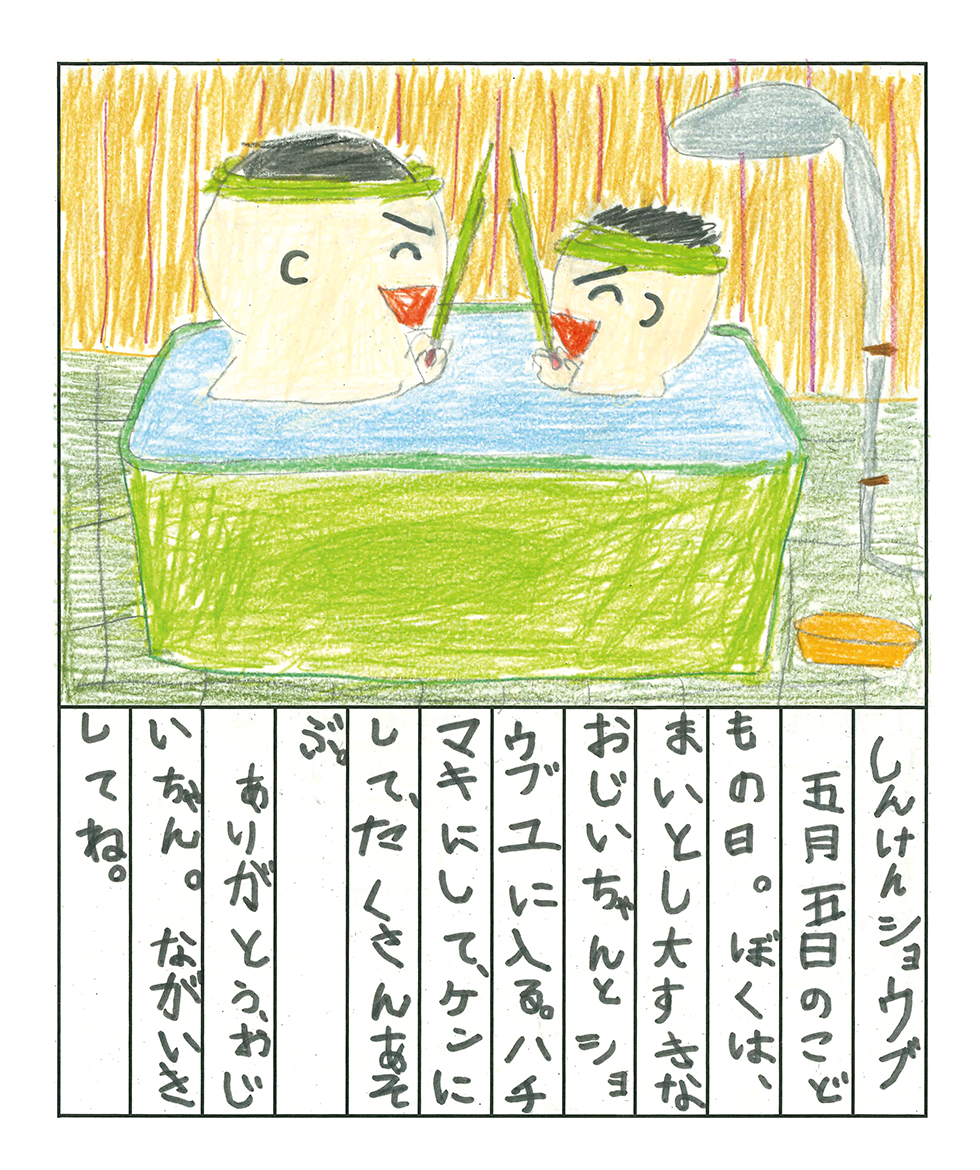 しんけんショウブ
五月五日のこど
もの日。ぼくは、
まいとし大すきな
おじいちゃんとショ
ウブユに入る。ハチ
マキにして、ケンに
して、たくさんあそ
ぶ。
ありがとう、おじ
いちゃん。ながいき
してね。